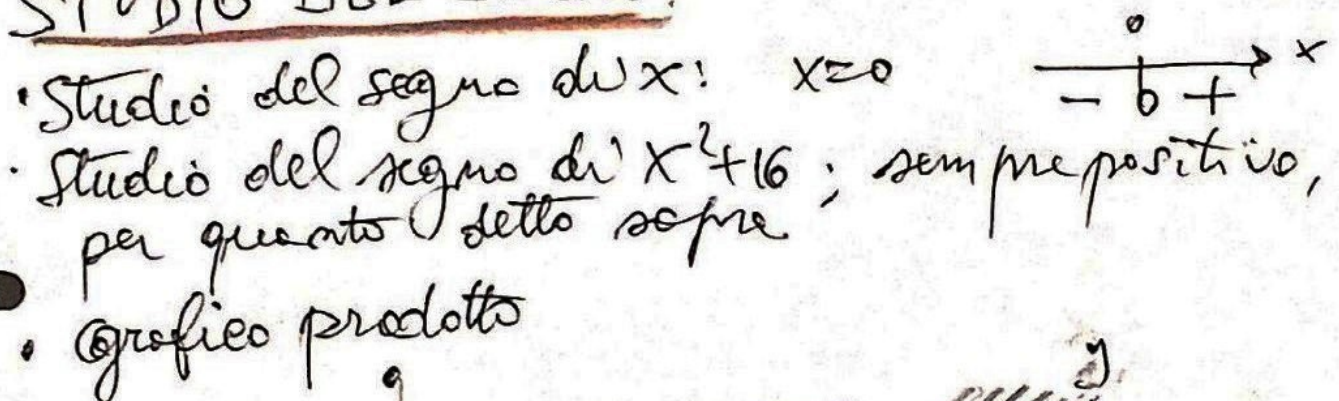 STUDIO DEL
• Studio del segno di x: x=0
0
x
- 0 +
• Studio del segno di x²+16; sempre positivo,
per quanto detto sopra
• grafico prodotto
y